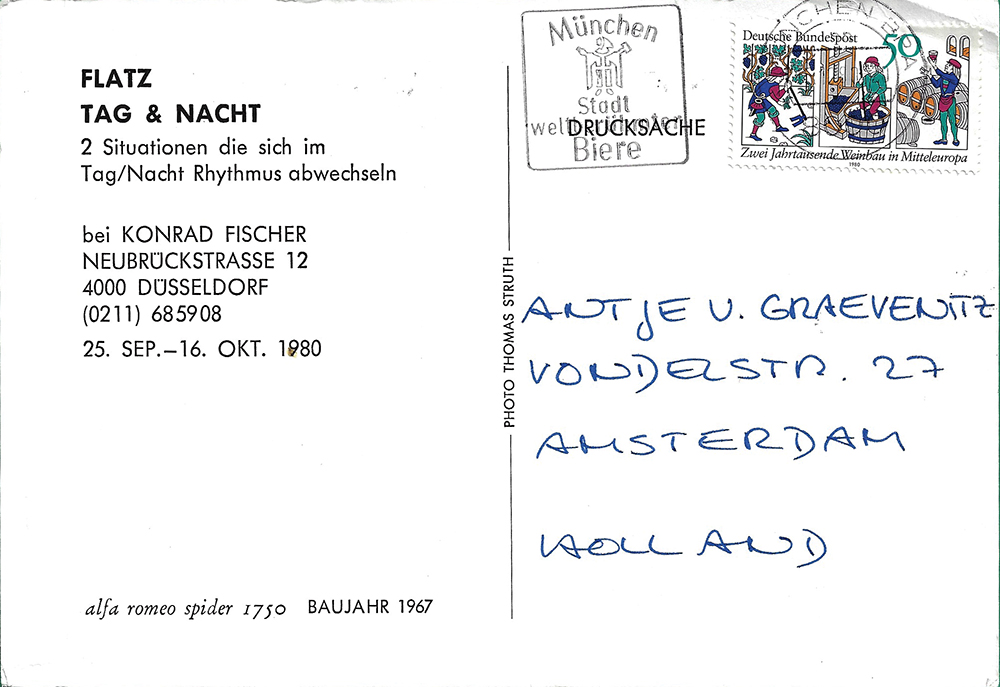 FLATZ
TAG & NACHT
2 Situationen die sich im
Tag/Nacht Rhythmus abwechseln
bei KONRAD FISCHER
NEUBRÜCKSTRASSE 12
4000 DÜSSELDORF
(0211) 685908
25. SEP.–16. OKT. 1980
alfa romeo spider 1750 BAUJAHR 1967
PHOTO THOMAS STRUTH
München
Stadt
weltberühmter
Biere
DRUCKSACHE
MÜNCHEN BPA
Deutsche Bundespost
50
Zwei Jahrtausende Weinbau in Mitteleuropa
1980
ANTJE V. GRAEVENITZ
VONDELSTR. 27
AMSTERDAM
HOLLAND